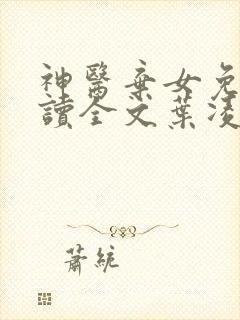 神醫棄女免
讀全文葉凌
蕭統